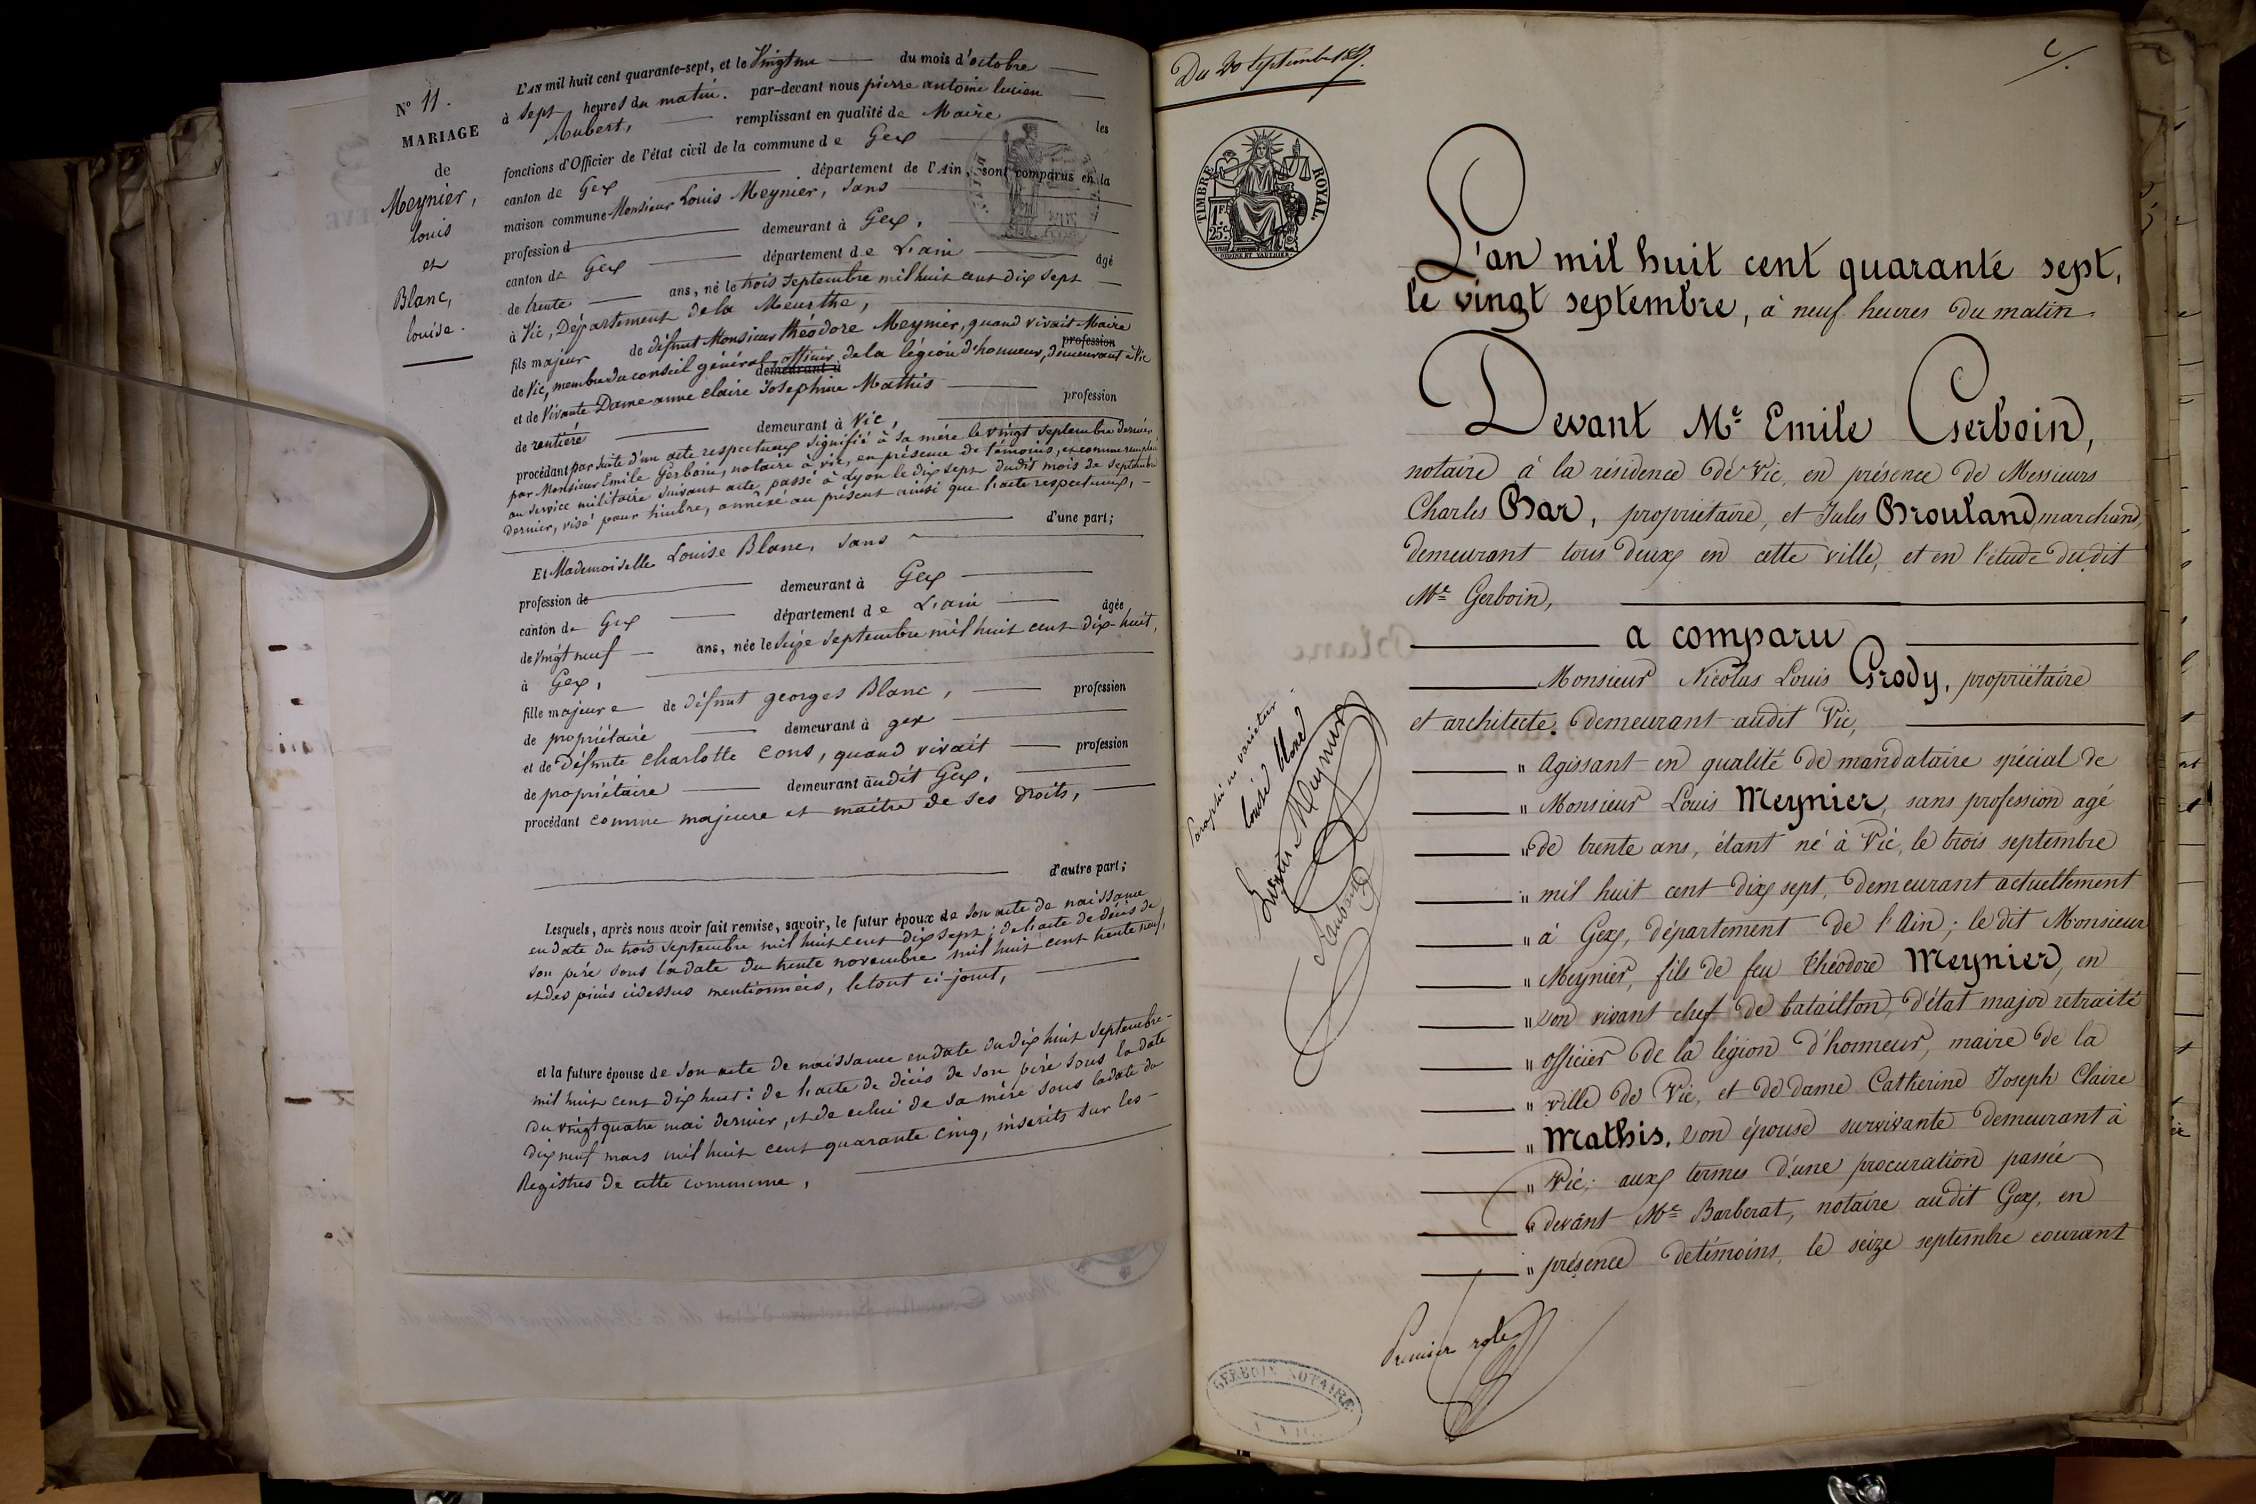 N° 11.
MARIAGE
de
Meynier,
louis
et
Blanc,
louise.
L'AN mil huit cent quarante-sept, et le Vingt un du mois d'octobre
à sept heures du matin. par-devant nous pierre antoine lucien
Aubert, remplissant en qualité de Maire les
fonctions d'Officier de l'état civil de la commune de Gex
canton de Gex département de l'Ain, sont comparus en la
maison commune Monsieur Louis Meynier, sans
profession d demeurant à Gex,
canton de Gex département de L'ain âgé
de trente ans, né le trois Septembre mil huit cent dix sept
à Vic, Département de la Meurthe,
fils majeur de défunt Monsieur théodore Meynier, quand vivait Maire
profession
de Vic, membre du conseil général, officier de la légion d'honneur, demeurant à Vic
demeurant à
et de Vivante Dame anne claire Josephine Mathis profession
de rentière demeurant à Vic,
procédant par suite d'un acte respectueux signifié à sa mére le vingt septembre dernier
par Monsieur Emile Gerboin, notaire à vic, en présence de témoins, et comme remplacé
au service militaire suivant acte passé à Lyon le dix sept dudit mois de septembre
dernier, visé pour timbre, annéxé au présent ainsi que l'acte respectueux,
d'une part;
Et Mademoiselle Louise Blanc, sans
profession de demeurant à Gex
canton de Gex département de L'ain âgée
de vingt neuf ans, née le seize septembre mil huit cent dix-huit,
à Gex,
fille majeure de défunt georges Blanc, profession
de propriétaire demeurant à gex
et de défunte charlotte Cons, quand vivait profession
de propriétaire demeurant audit Gex,
procédant comme majeure et maitre de ses droits,
d'autre part;
Lesquels, après nous avoir fait remise, savoir, le futur époux de son acte de naissance
en date du trois septembre mil huit cent dix sept; de l'acte de décès de
son père sous la date du trente novembre mil huit cent trente neuf,
et des pièces cidessus mentionnées, le tout ci-joint,
et la future épouse de son acte de naissance en date du dix huit septembre
mil huit cent dix huit: de l'acte de décès de son père sous la date
du vingt quatre mai dernier, et de celui de sa mére sous la date du
dix neuf mars mil huit cent quarante cinq, inscrits sur les
Registres de cette commune,
Du 20 Septembre 1847.
TIMBRE ROYAL
1 F.
25 c.
L'an mil huit cent quarante sept,
le vingt septembre, à neuf heures du matin.
Devant Me Emile Gerboin,
notaire à la résidence de Vic, en présence de Messieurs
Charles Bar, propriétaire, et Jules Brouland, marchand,
demeurant tous deux en cette ville, et en l'étude du dit
Me Gerboin,
a comparu
Monsieur Nicolas Louis Grody, propriétaire
et architecte, demeurant audit Vic,
" Agissant en qualité de mandataire spécial de
" Monsieur Louis Meynier, sans profession agé
" de trente ans, étant né à Vic, le trois septembre
" mil huit cent dix sept, demeurant actuellement
" à Gex, département de l'Ain; le dit Monsieur
" Meynier, fils de feu théodore Meynier, en
" son vivant chef de bataillon, d'état major retraité
" officier de la légion d'honneur, maire de la
" ville de Vic, et de dame Catherine Joseph Claire
" Mathis, son épouse survivante demeurant à
" Vic; aux termes d'une procuration passée
" devant Me Barberat, notaire audit Gex, en
" présence de témoins, le seize septembre courant
Paraphé ne varietur
louise blanc
Louis Meynier
Aubert
Premier role
GERBOIN NOTAIRE
A VIC